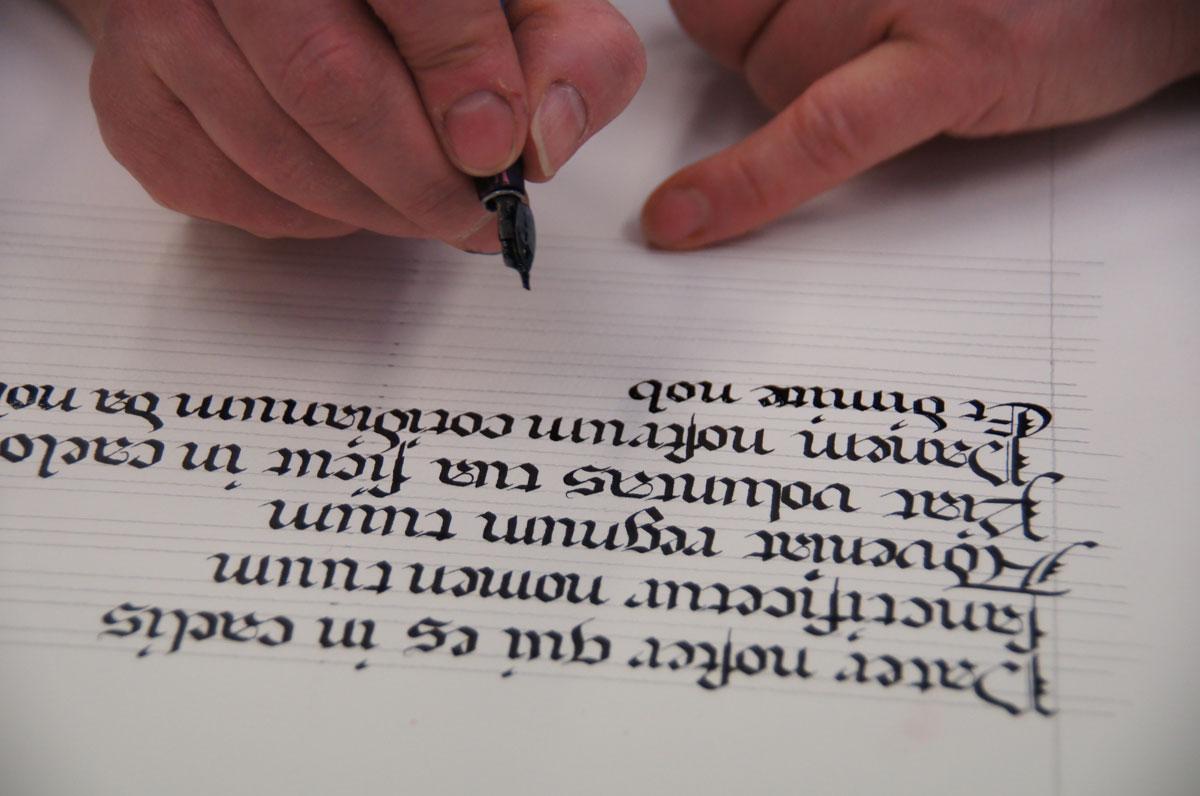 Pater noſter qui es in caelis
ſanctificetur nomen tuum
Adveniat regnum tuum
Fiat voluntas tua ſicut in caelo
Panem noſtrum cotidianum da
Et dimitte nob